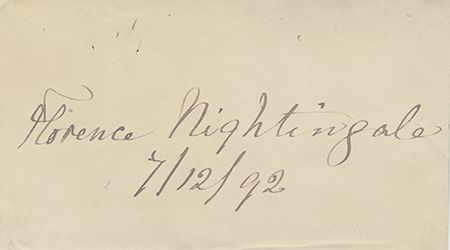 Florence Nightingale
7/12/92